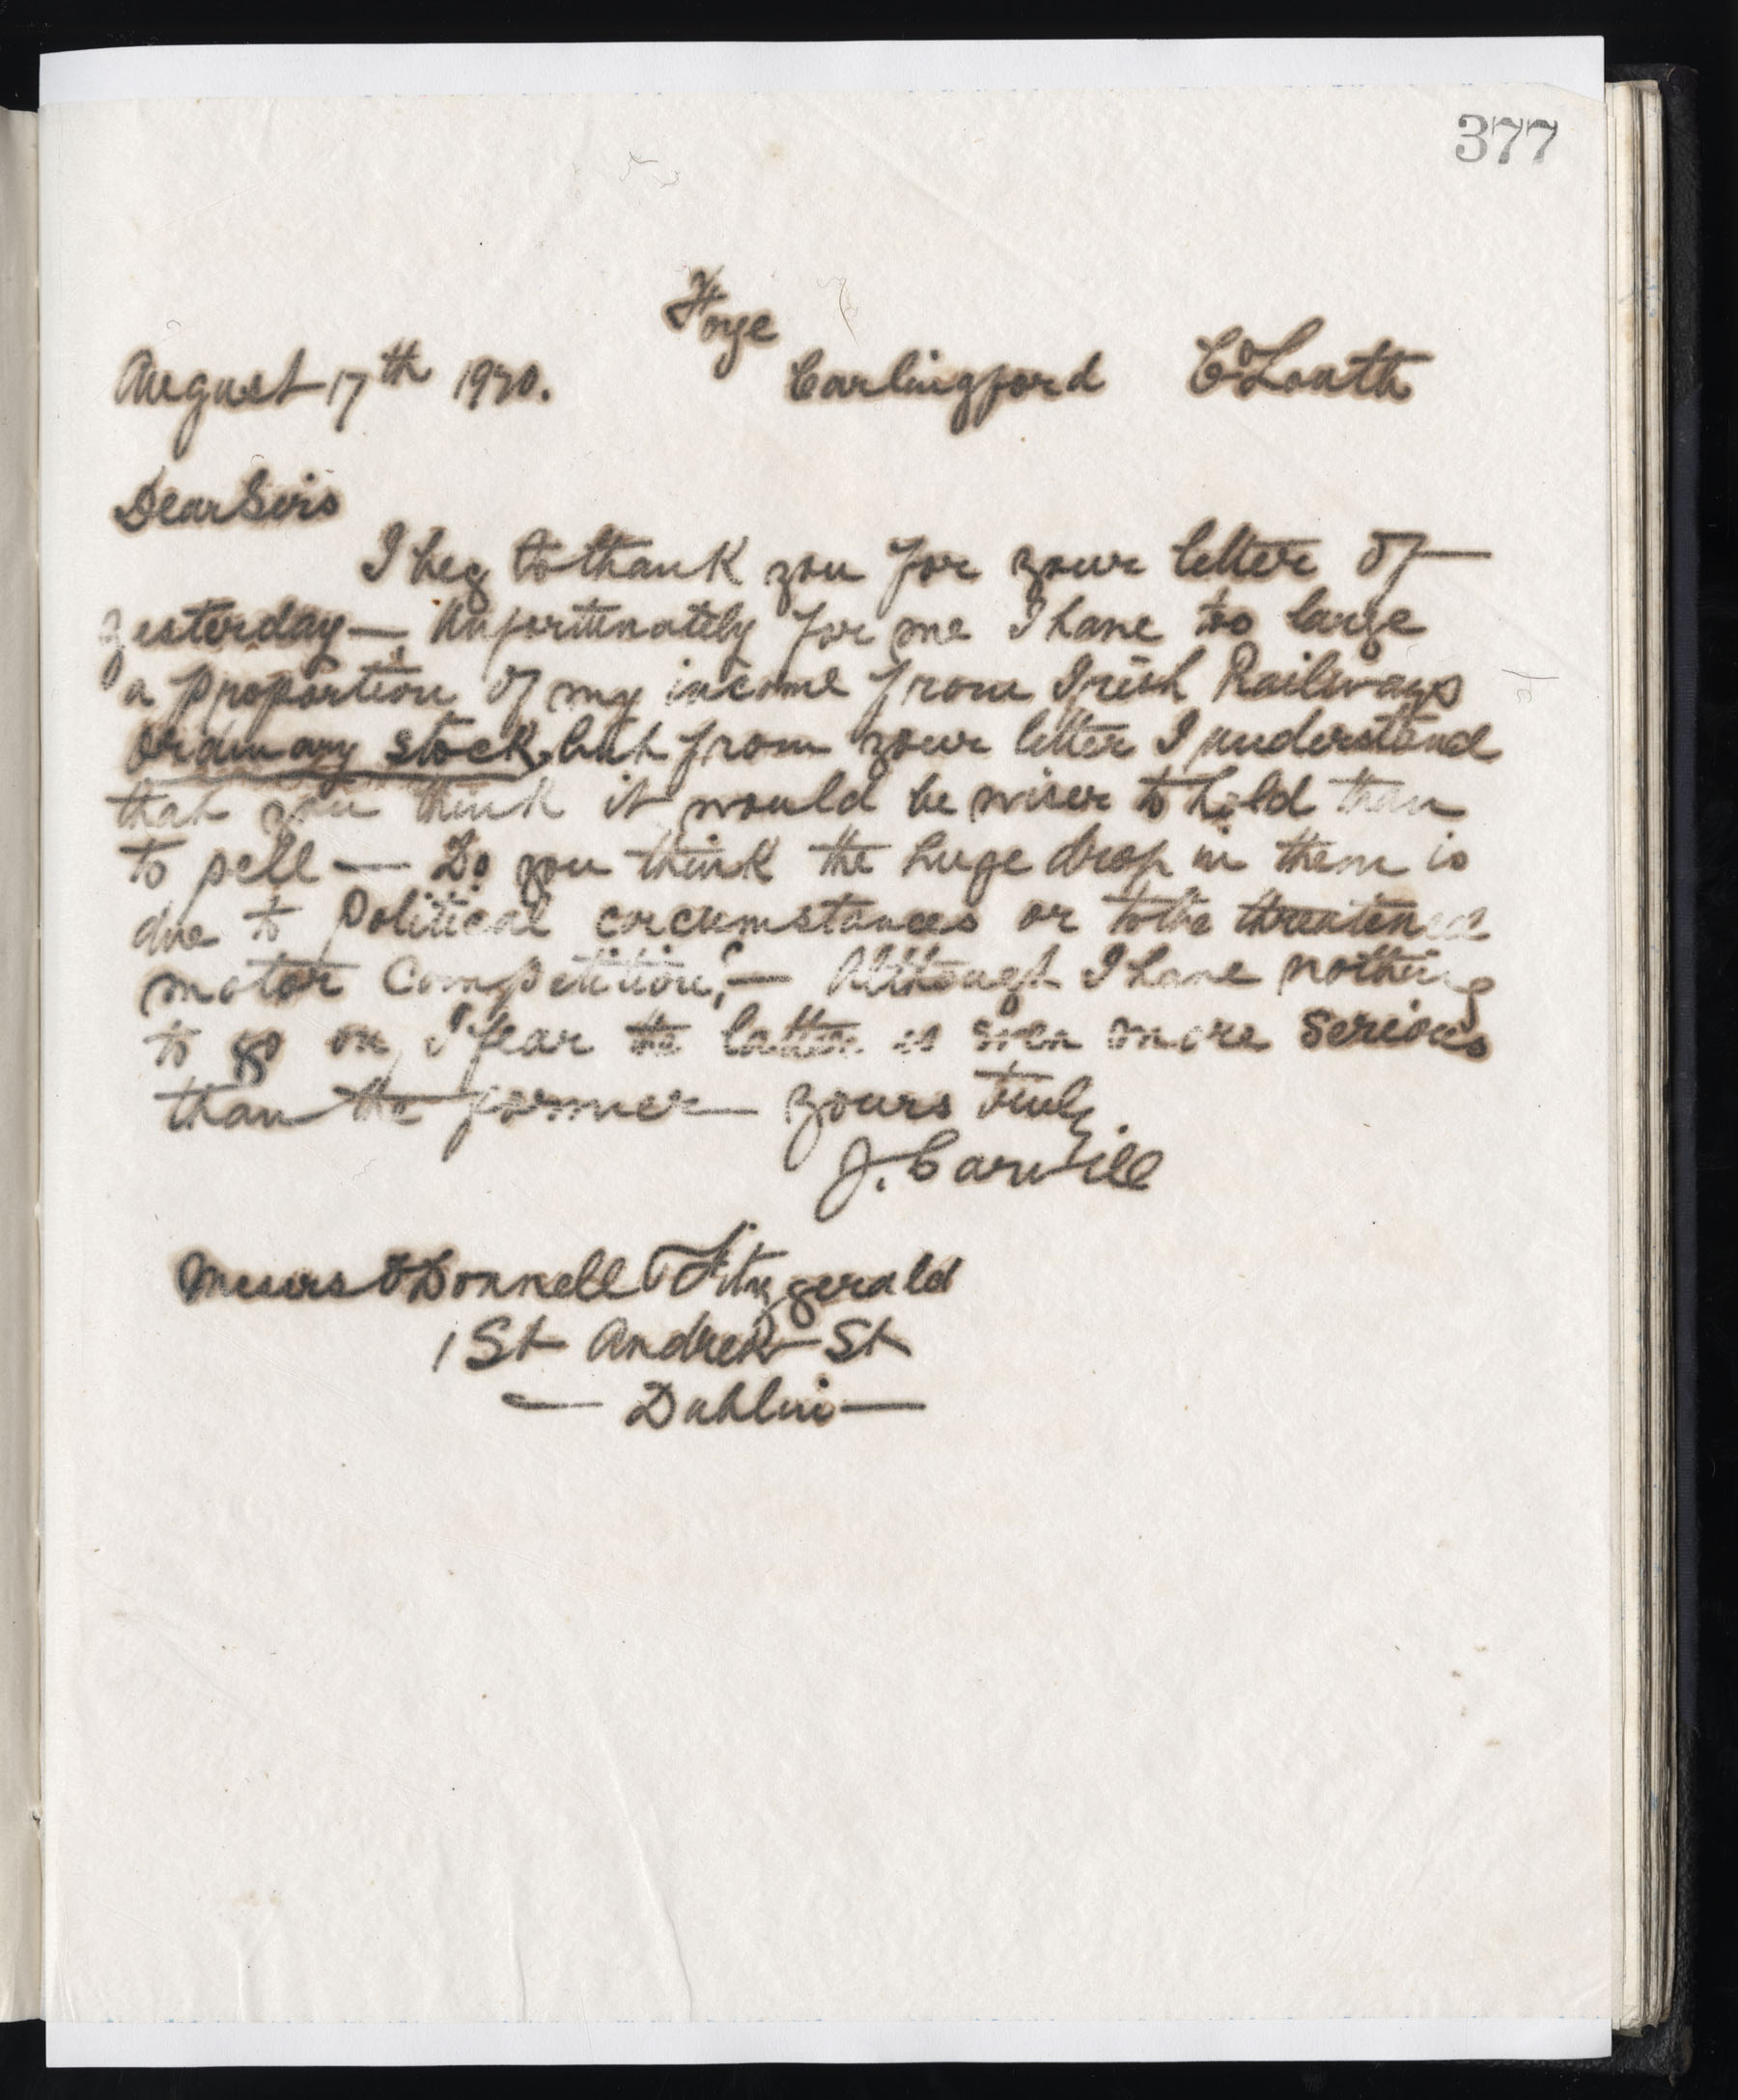 377
Foye
August 17th 1920. Carlingford Co Louth
Dear Sirs
I beg to thank you for your letter of —
yesterday — Unfortunately for me I have too large
a proportion of my income from Irish Railways
ordinary stock, but from your letter I understand
that you think it would be wiser to hold than
to sell — Do you think the huge drop in them is
due to Political circumstances or to the threatened
motor Competition? — Although I have nothing
to go on, I fear the latter is even more serious
than the former — yours truly
J. Carvill
Messrs O'Donnell & Fitzgerald
1 St Andrew St
— Dublin —